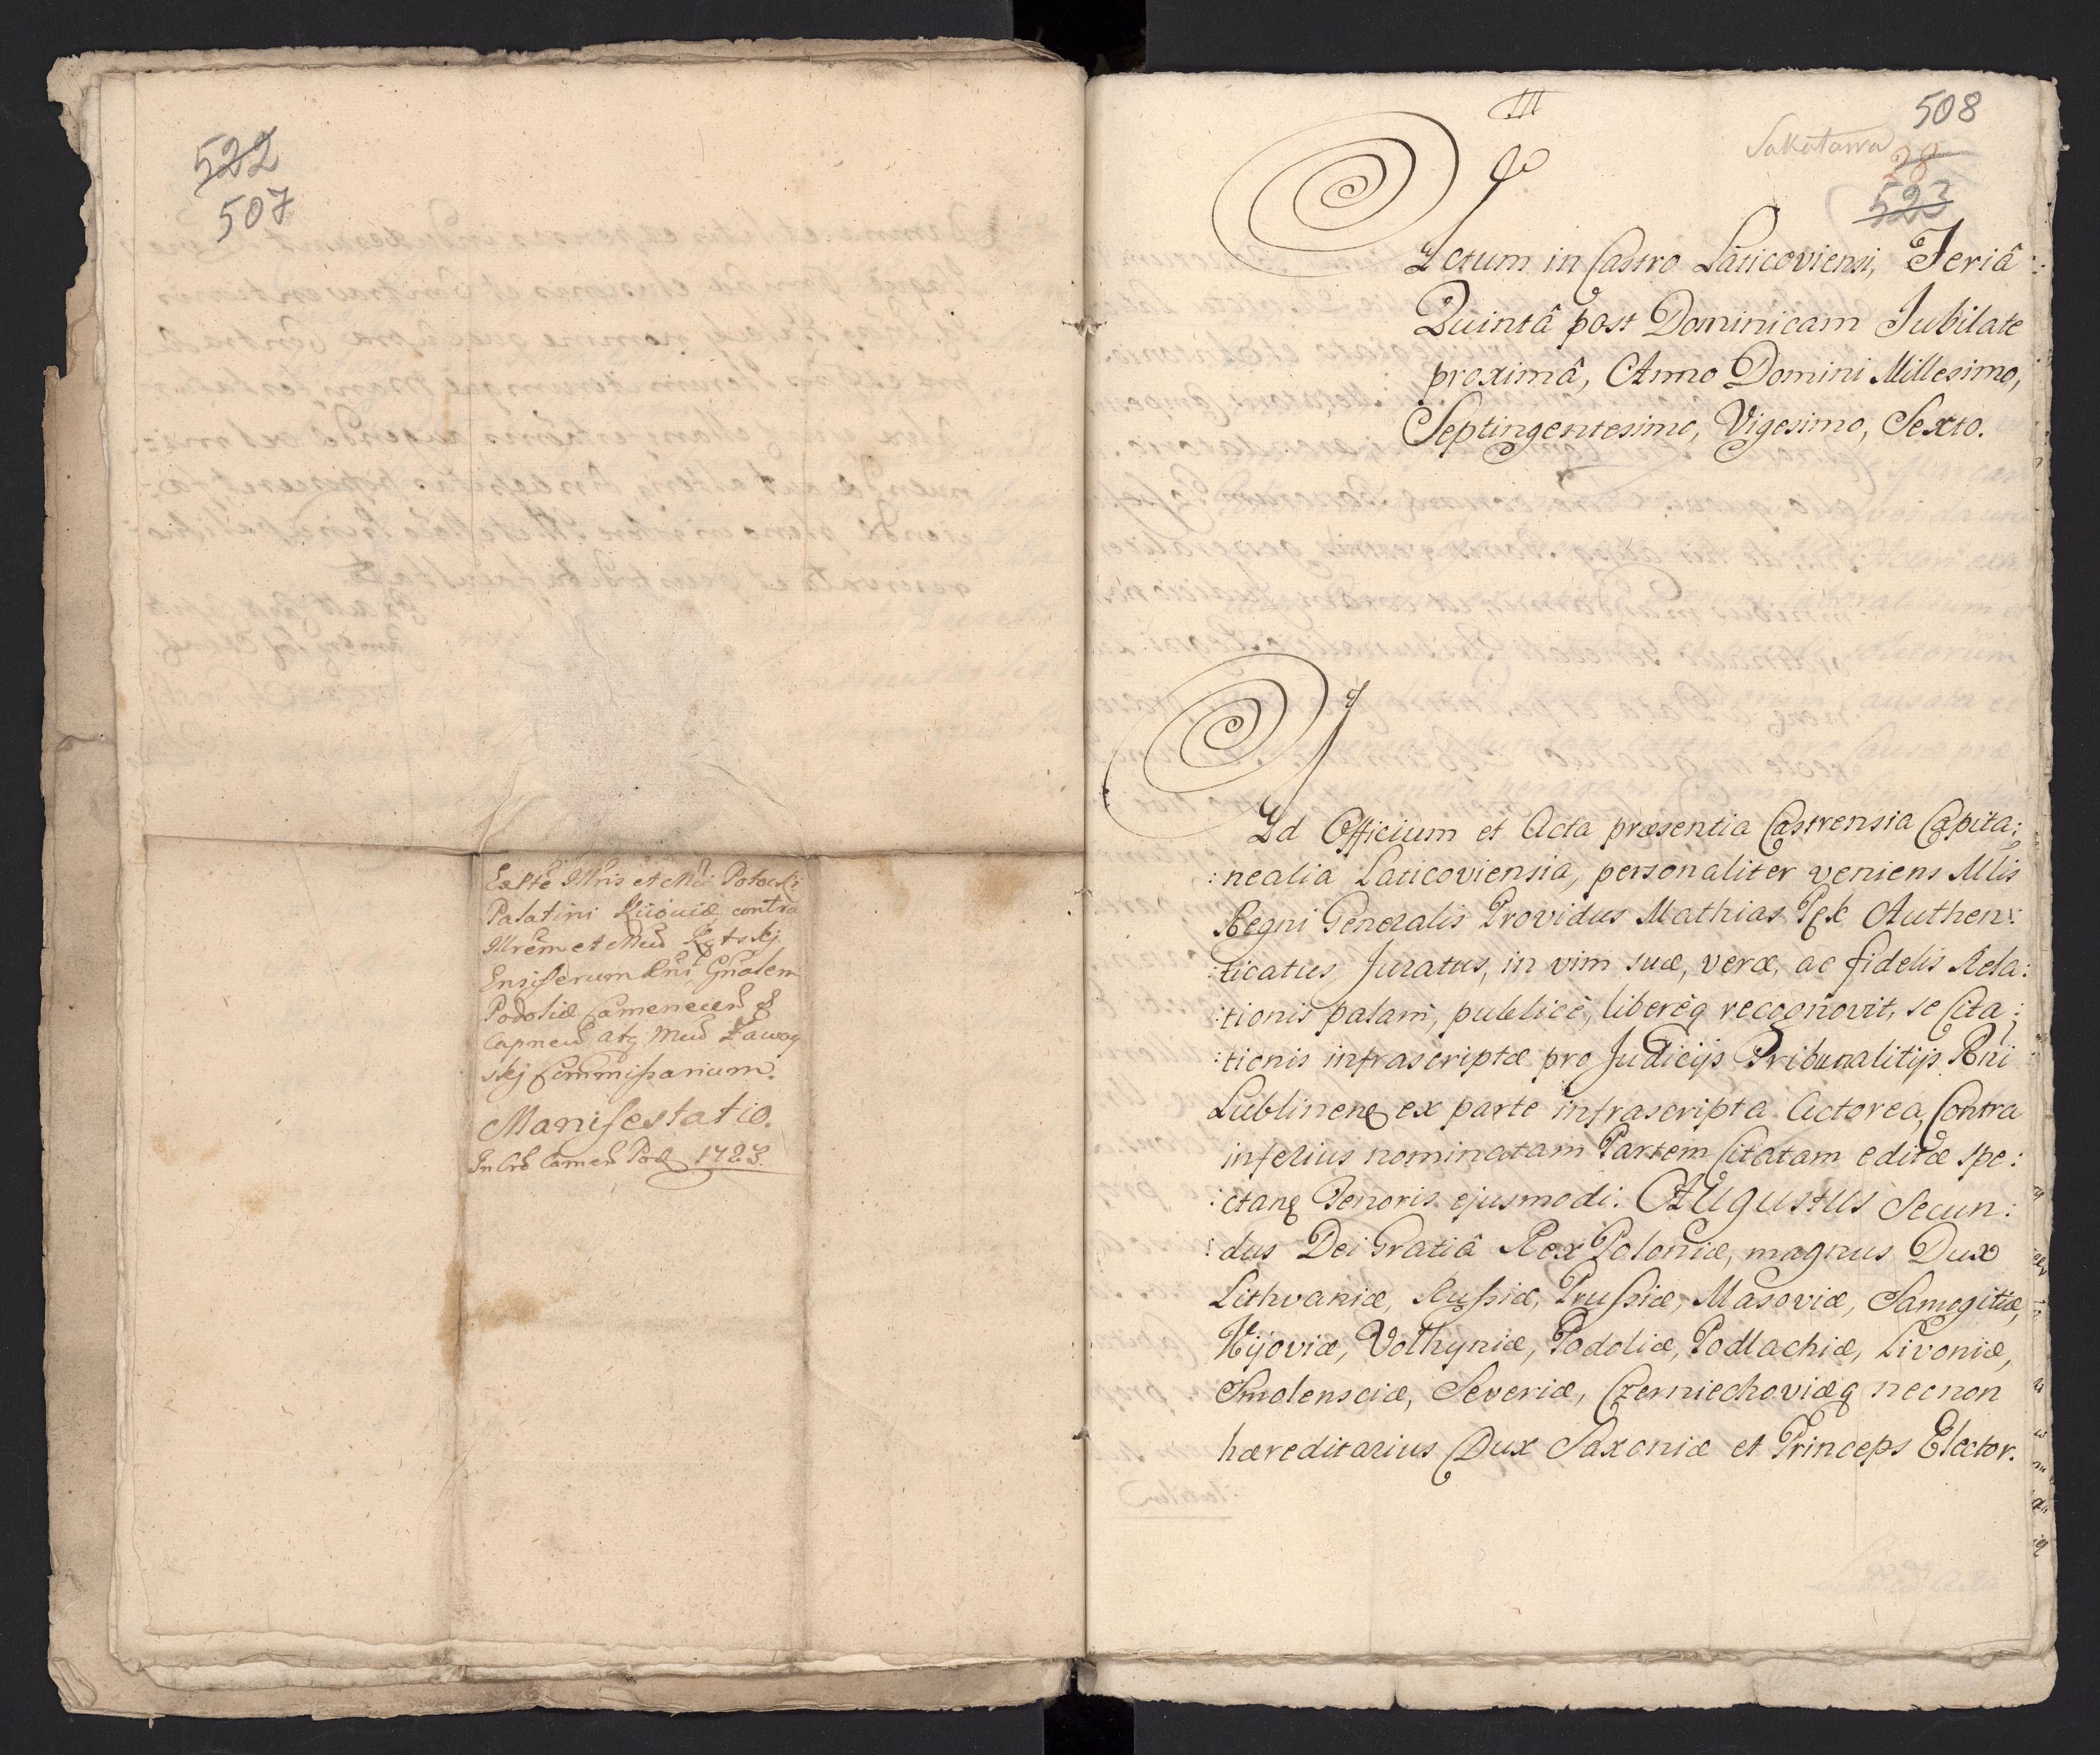 522
507
Exptē Illris et Mci Potocki
Palatini Kiioviæ contra
Illrem et Mcū Kątskj
Ensiferum Rni Gñalem
Podoliæ Camenecen̄ &
Capneū atq Mcū Zaway
skj Commissarium.
Manifestatio.
In Crō Camen̄ Pod 1723.
508
Sakatawa
28
523
Actum in Castro Laticoviensi, Feriâ
Quintâ post Dominicam Jubilate
proximâ, Anno Domini Millesimo,
Septingentesimo, Vigesimo, Sexto.
Ad Officium et Acta præsentia Castrensia Capita:
:nealia Laticoviensia, personaliter veniens Mlis
Regni Generalis Providus Mathias Pęk Authen:
:ticatus Juratus, in vim suæ, veræ, ac fidelis Rela:
:tionis palam, publicè, liberèq recognovit, se Cita:
:tionis infrascriptæ pro Judicijs Tribunalitijs Rni
Lublinenq ex parte infrascripta Actorea, Contra
inferius nominatam Partem Citatam editæ spe:
:ctanq Tenoris ejusmodi: AUgustus Secun:
:dus Dei Gratiâ Rex Poloniæ, magnus Dux
Lithvaniæ, Russiæ, Prussiæ, Masoviæ, Samogitiæ,
Kijoviæ, Volhyniæ, Podoliæ, Podlachiæ, Livoniæ,
Smolensciæ, Severiæ, Czerniechoviæq necnon
hæreditarius Dux Saxoniæ et Princeps Elector.